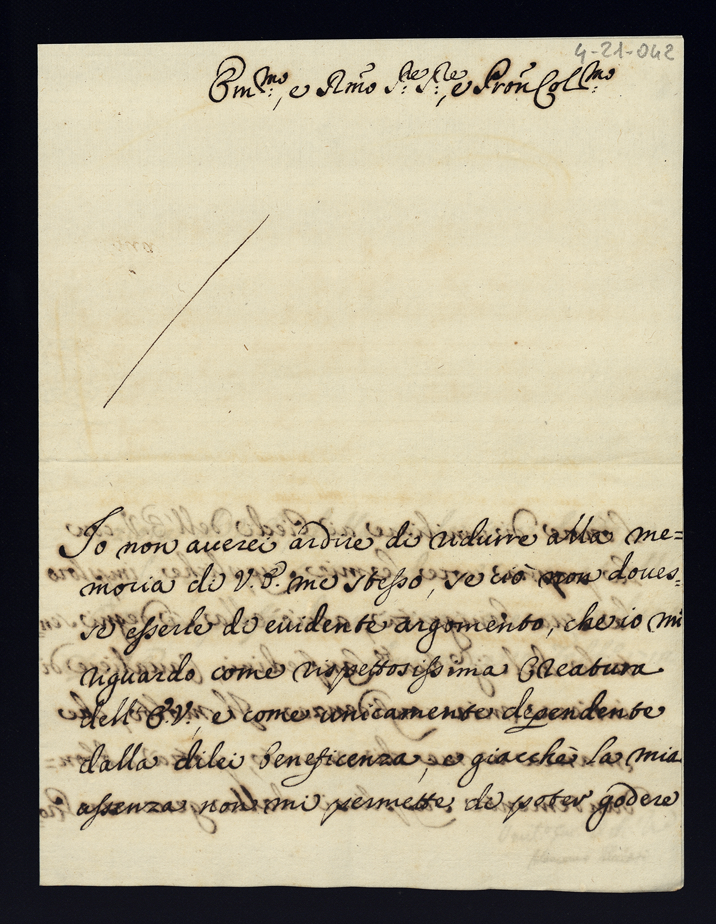 4-21-042
Em.mo, e Rmo P.re P.re, e Pron Col.mo
Io non averei ardire di ridurre alla me=
moria di V. E. me stesso, se ciò non doues=
se esserle di euidente argomento, che io mi
riguardo come rispettosissima Creatura
dell'E. V., e come unicamente dependente
dalla dilei beneficenza, e giacchè la mia
assenza non mi permette, di poter godere